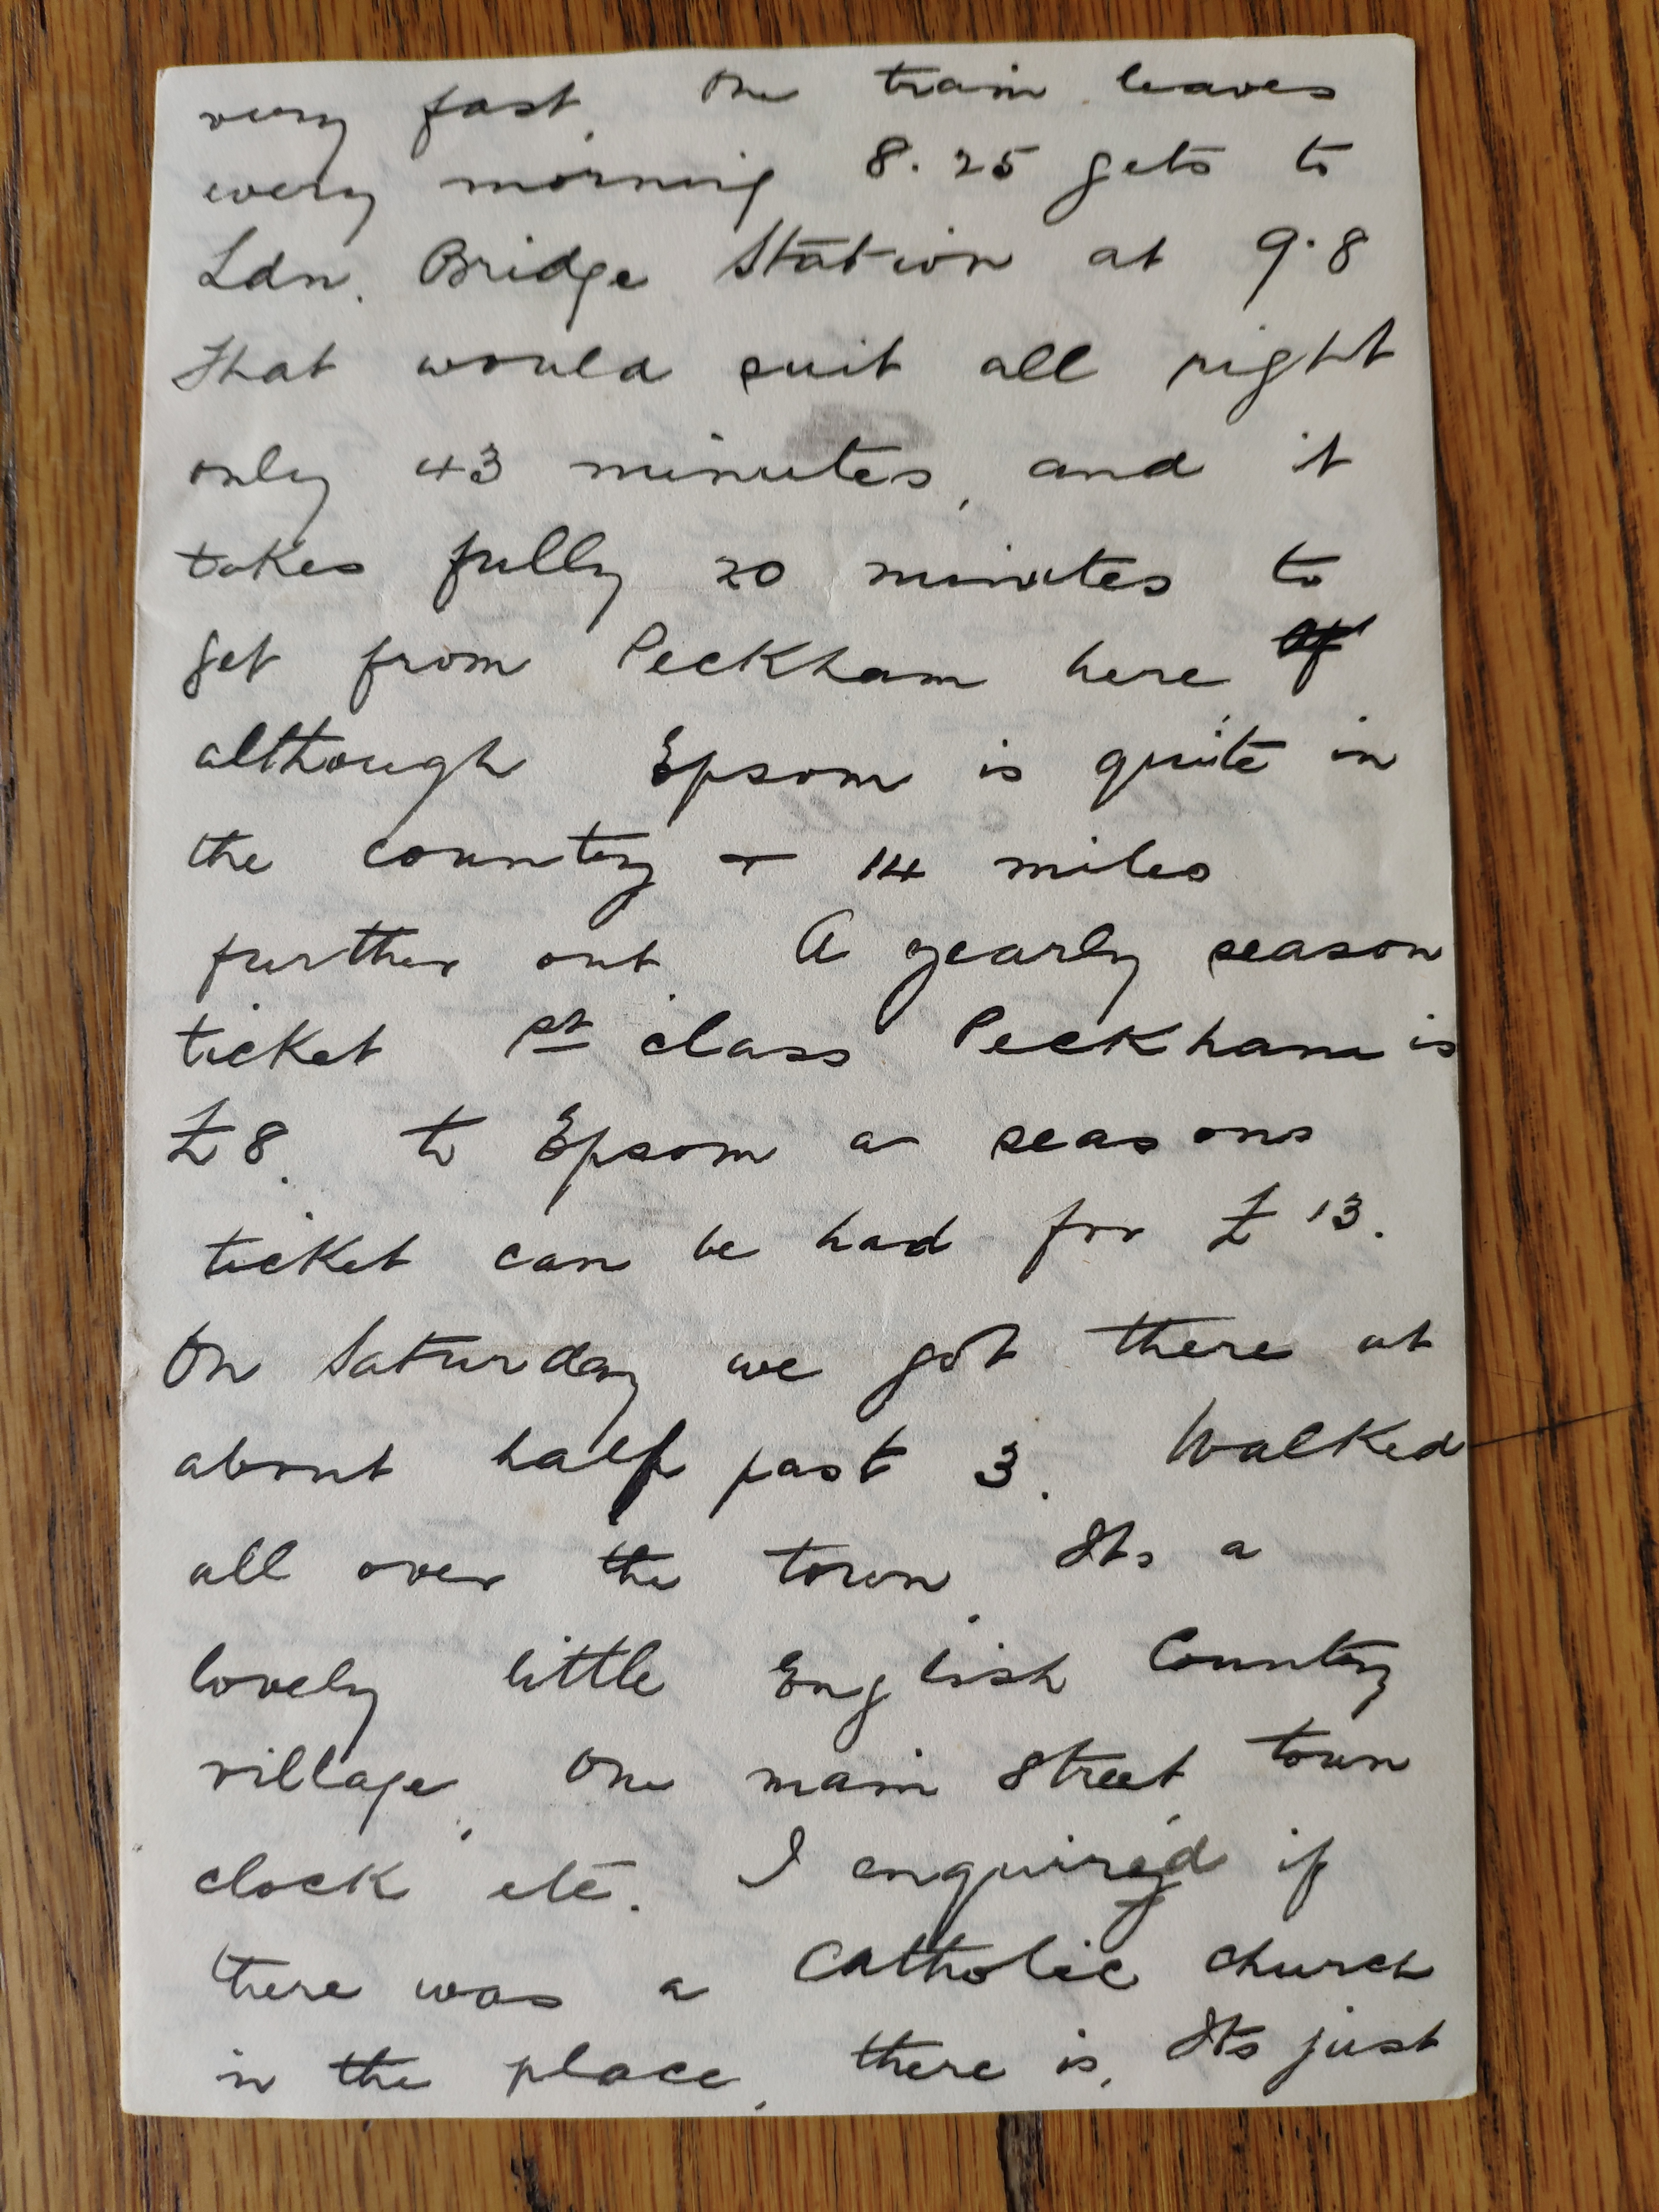 very fast. One train leaves
every morning 8.25 gets to
Ldn. Bridge Station at 9.8
that would suit all right
only 43 minutes, and it
takes fully 20 minutes to
get from Peckham here
although Epsom is quite in
the country + 14 miles
further out A yearly season
ticket 1st class Peckham is
£8. to Epsom a seasons
ticket can be had for £13.
On Saturday we got there at
about half past 3. Walked
all over the town. Its a
lovely little English Country
village, One main street town
clock etc. I enquired if
there was a Catholic church
in the place, there is, Its just